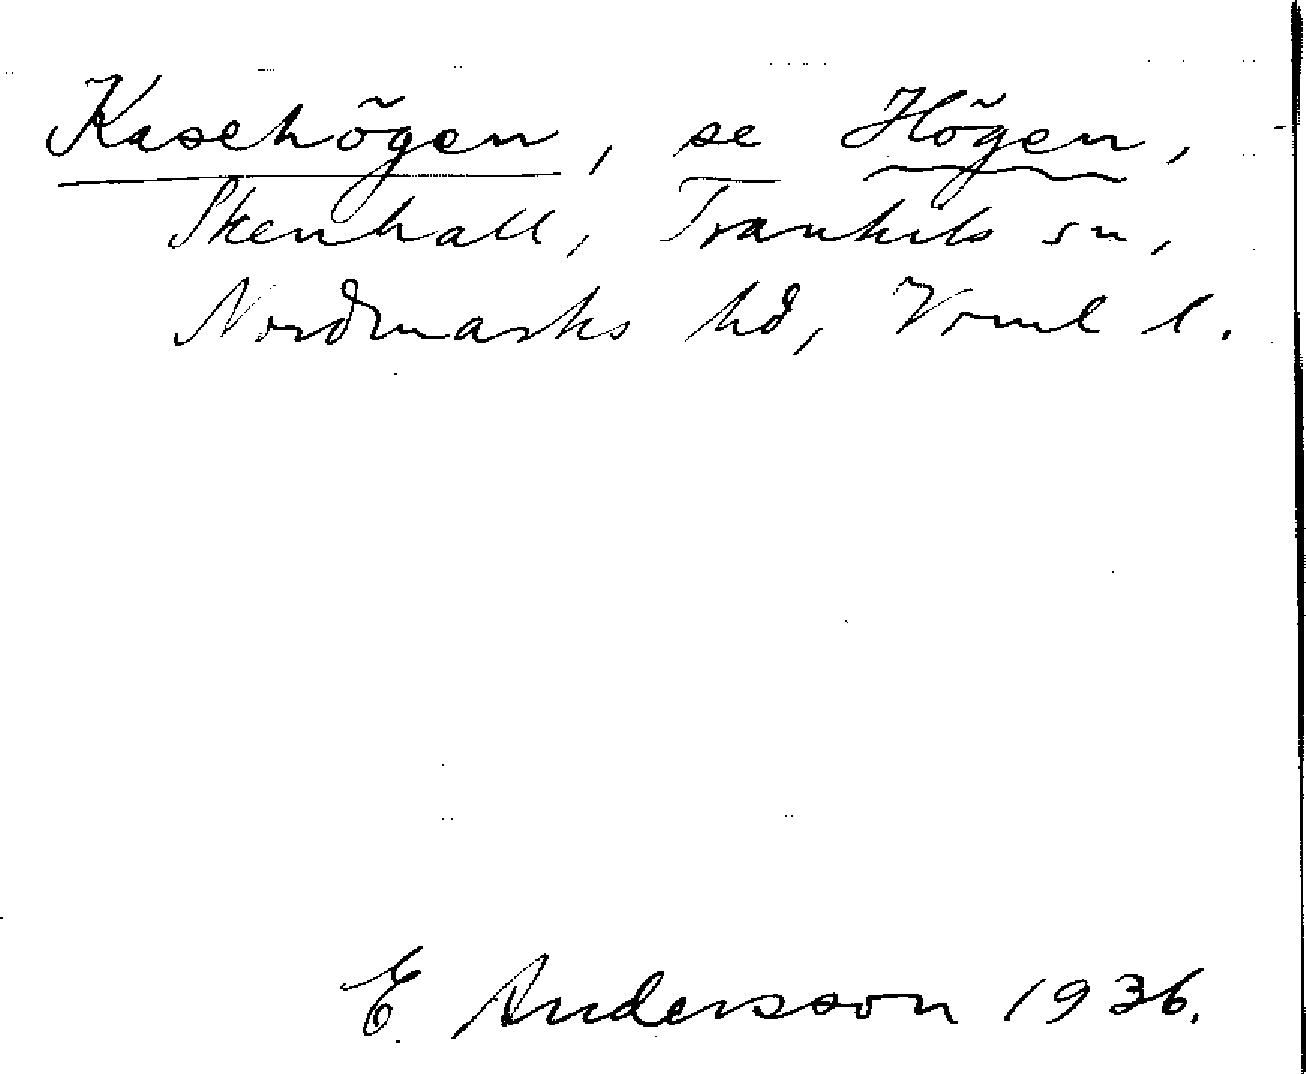 Kasehögen, se Högen,
Skenhall, Trankils sn,
Nordmarks hd, Vrml l.
E. Andersson 1936.